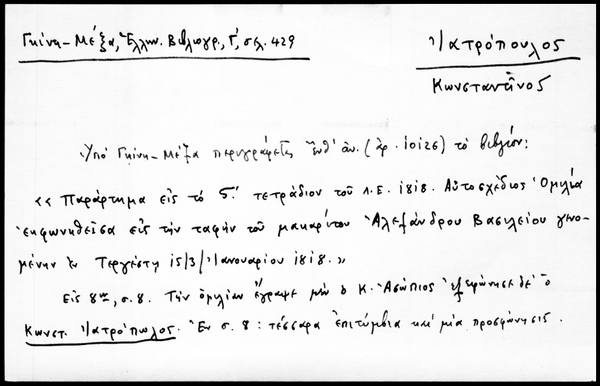 Γκίνη-Μέξα, Ἑλλην. Βιβλιογρ., Γ', σελ. 429
Ἰατρόπουλος
Κωνσταντῖνος
Ὑπό Γκίνη-Μέξα περιγράφεται ἔνθ' ἀν. (ἀρ. 10126) τό βιβλίον:
«Παράρτημα εἰς τό 5' τετράδιον τοῦ Λ.Ε. 1818. Αὐτοσχέδιος Ὁμιλία
ἐκφωνηθεῖσα εἰς τήν ταφήν τοῦ μακαρίτου Ἀλεξάνδρου Βασιλείου γενο-
μένην ἐν Τεργέστῃ 15/3/Ἰανουαρίου 1818.»
Εἰς 8ον, σ. 8. Τήν ὁμιλίαν ἔγραψε μέν ὁ Κ. Ἀσώπιος ἐξεφώνησε δέ ὁ
Κωνστ. Ἰατρόπωλος. Ἐν σ. 8: τέσσαρα ἐπιτύμβια καί μία προσφώνησις.